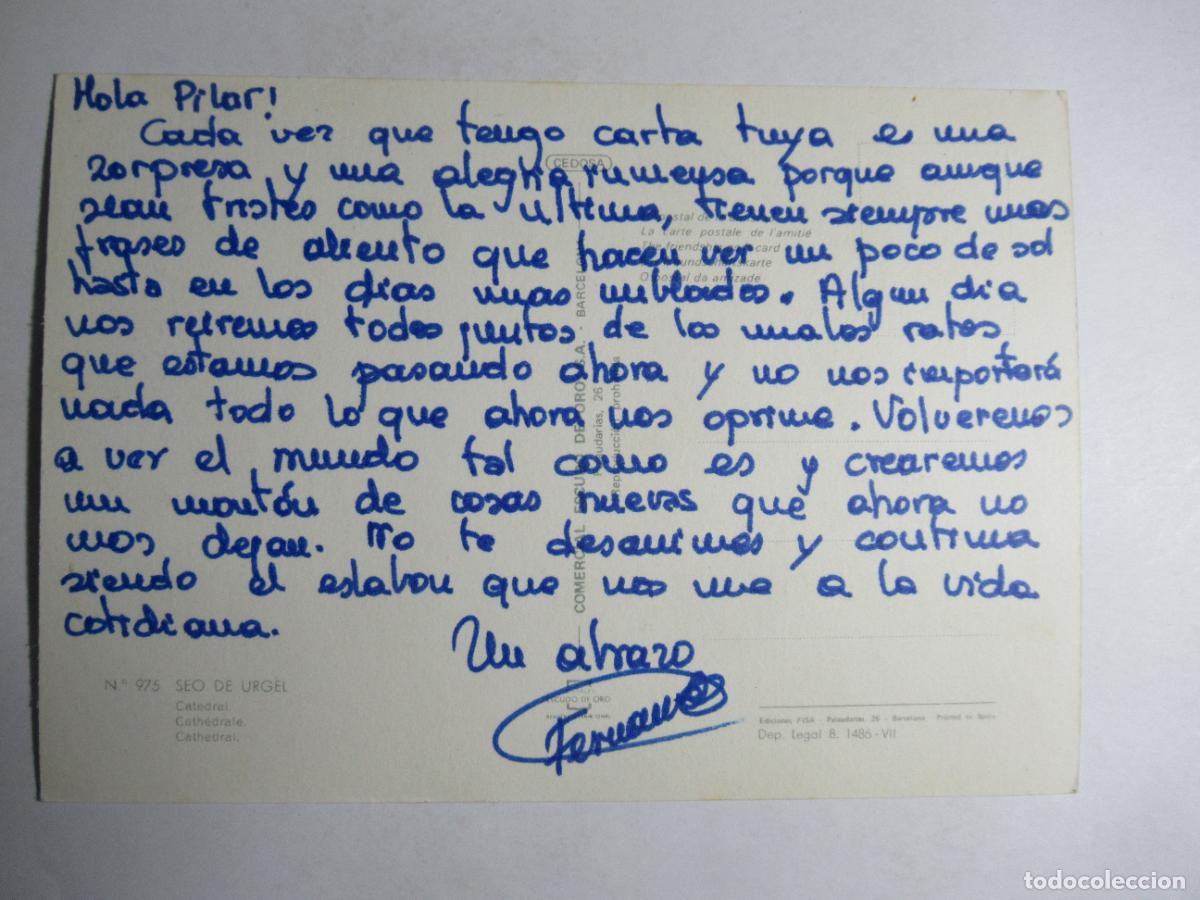 Hola Pilar!
Cada vez que tengo carta tuya es una
sorpresa y una alegria inmensa porque aunque
sean tristes como la ultima, tienen siempre unas
frases de aliento que hacen ver un poco de sol
hasta en los dias mas nublados. Algun dia
nos reiremos todos juntos de los malos ratos
que estamos pasando ahora y no nos importará
nada todo lo que ahora nos oprime. Volveremos
a ver el mundo tal como es y crearemos
un montón de cosas nuevas que ahora no
nos dejan. No te desanimes y continua
siendo el eslabon que nos une a la vida
cotidiana.
Un abrazo
Fernando
CEDOSA
La carte postale de l'amitié
The friendship card
O postal da amizade
COMERCIAL ESCUDO DE ORO, S.A. - BARCELONA
Palaudarias, 26
Reproducción prohibida
N.º 975 SEO DE URGEL
Catedral.
Cathédrale.
Cathedral.
ESCUDO DE ORO
Ediciones FISA - Palaudarias, 26 - Barcelona Printed in Spain
Dep. Legal B. 1486-VII
todocoleccion